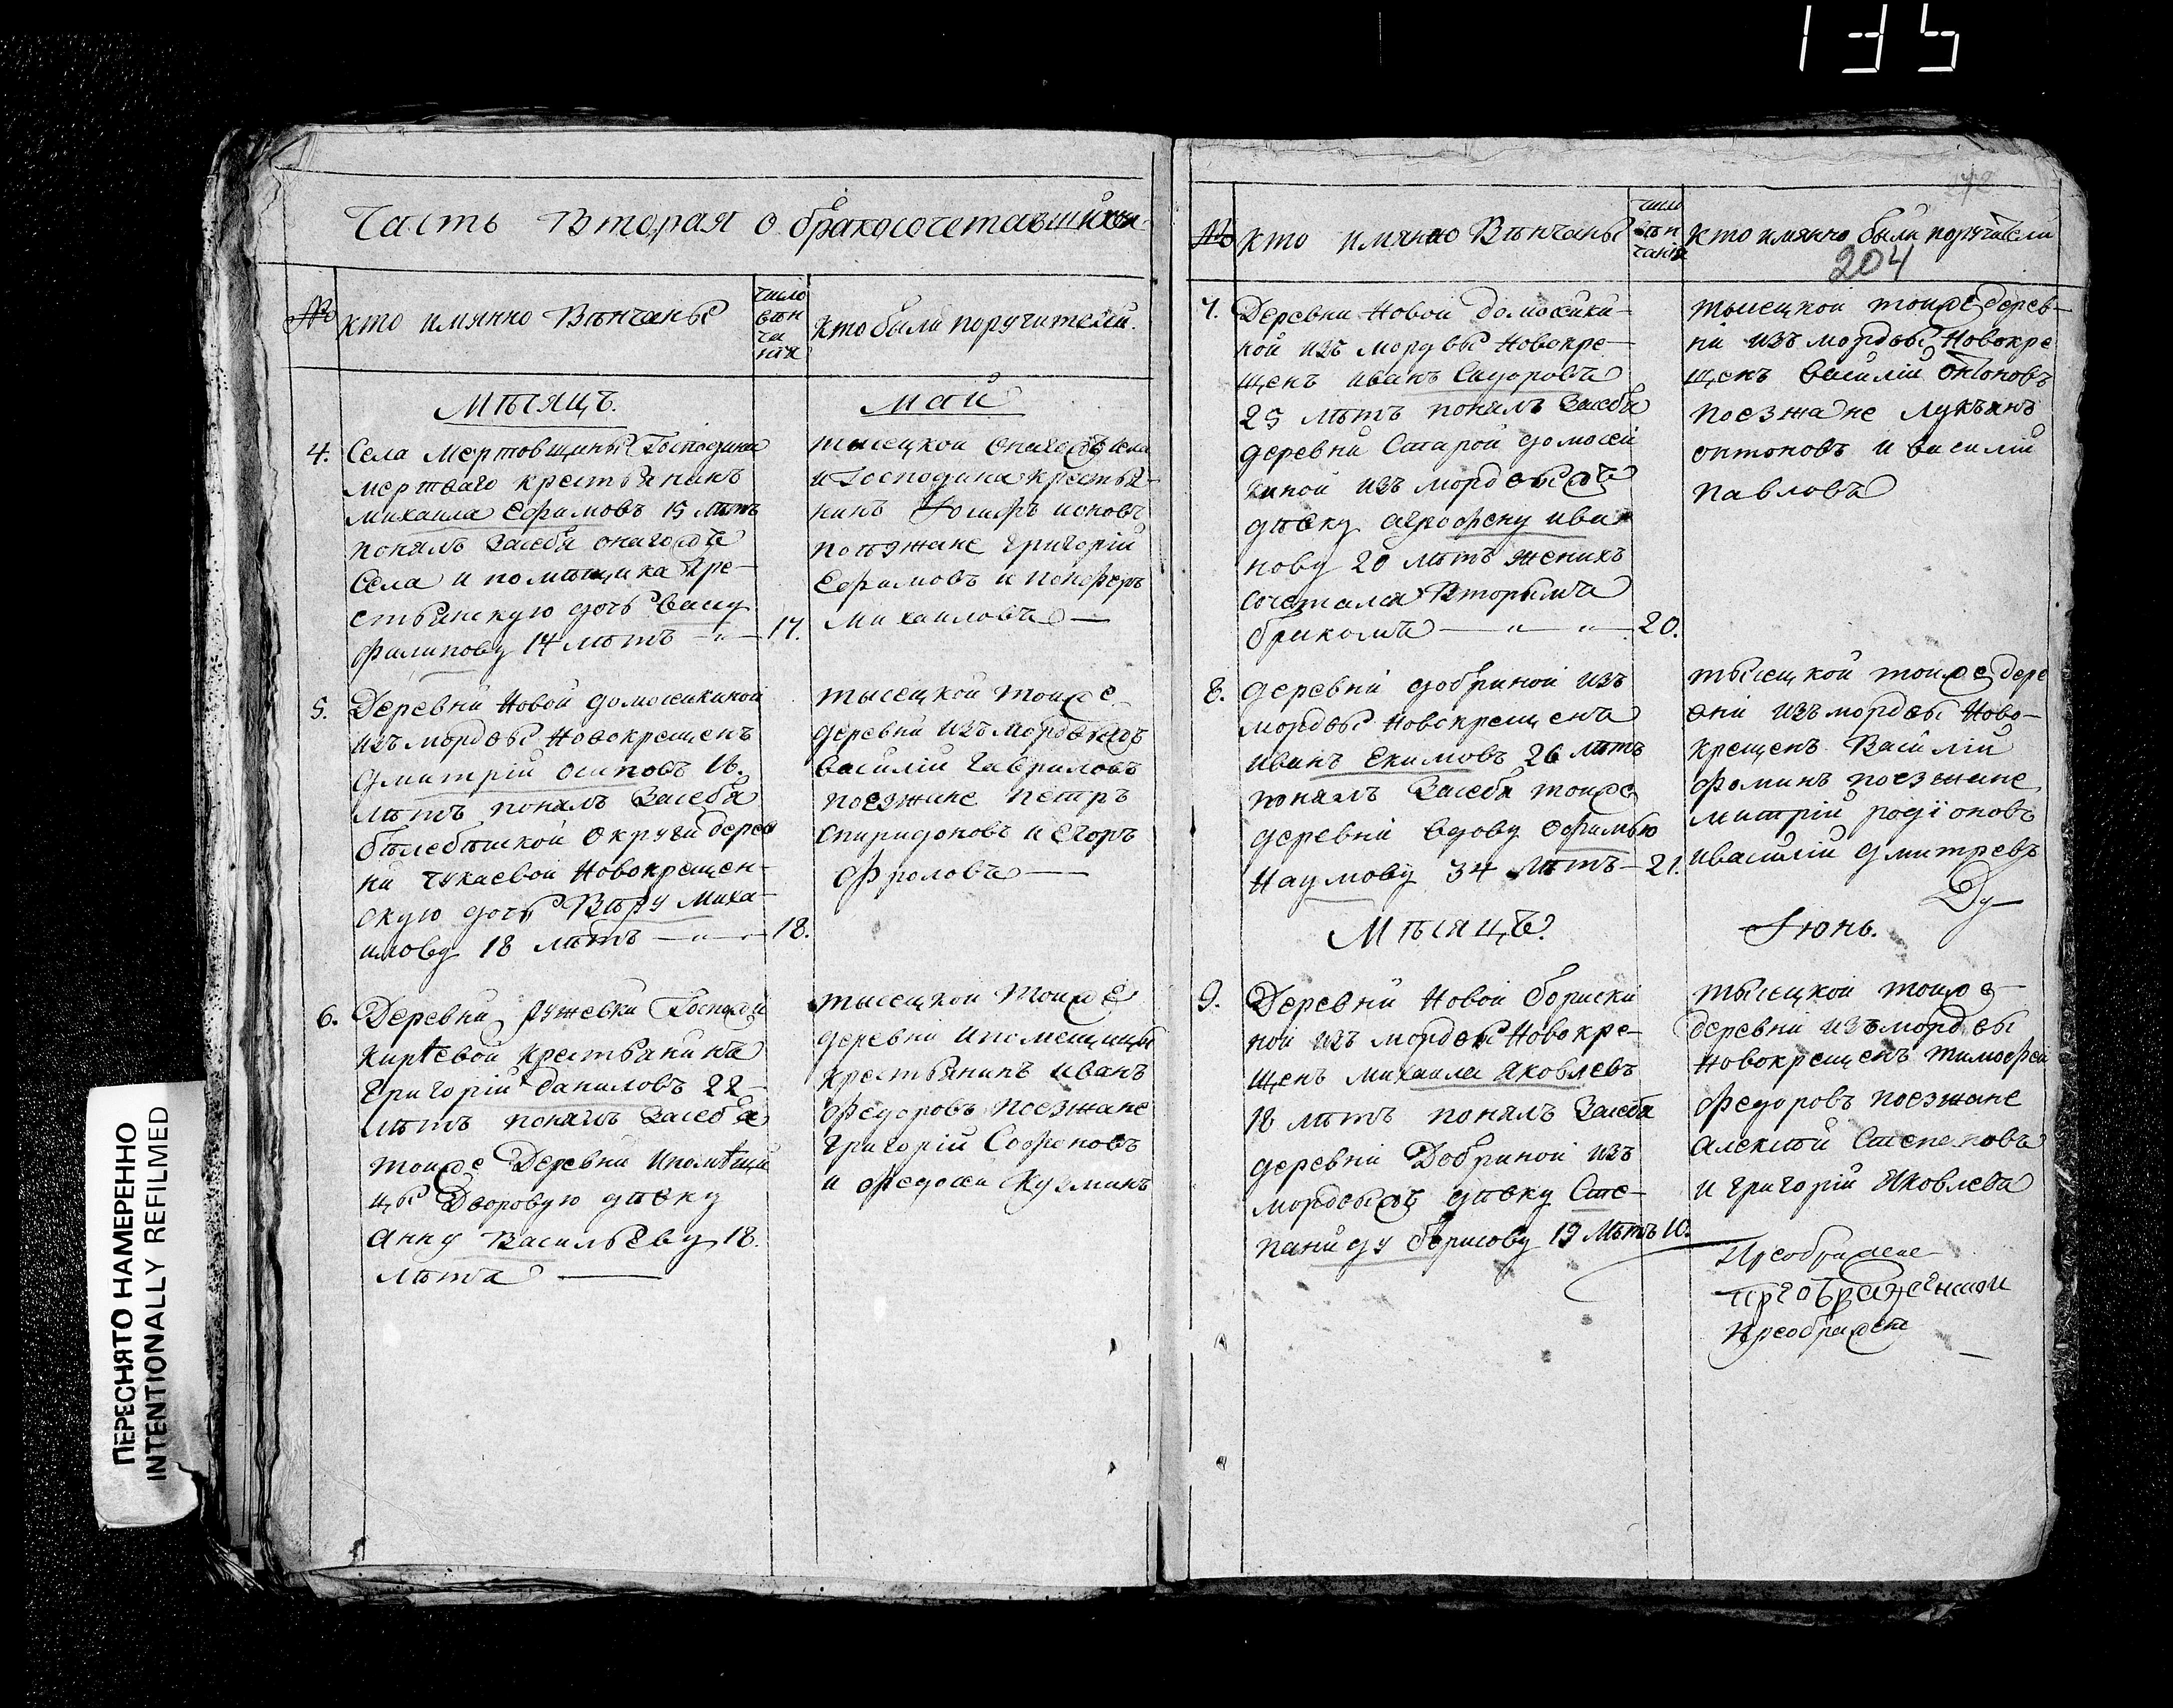 135
Часть Вторая о бракосочетавшихся
№
кто имянно Вѣнчаны
число
вѣн
ча
нія
кто были поручители.
Мѣсяцъ.
Май
4. Села Мертовщины Господина
мертваго крестьянинъ
михаила Ефимовъ 15 лѣтъ
понялъ Засебя онагожъ
Села и помѣщика кре-
стьянскую дочь васу
филипову 14 лѣтъ — „ — 17.
тысецкой онагожъ села
и Господина крестья-
нинъ
поѣзжане григорій
Ефимовъ и
михаиловъ —
5. Деревни Новой домосикиной
изъ мордвы Новокрещенъ
дмитрій осиповъ 16.
лѣтъ понялъ Засебя
бѣлебѣшкой округи дерев
ни чукаевой Новокрещен-
скую дочь Вѣру Миха-
илову 18 лѣтъ — „ — 18.
тысецкой тоиже
деревни изъ мордвыжъ
василій Гавриловъ
поезжане петръ
спиридоновъ и Егоръ
фроловъ —
6. Деревни ружевки Госпожи
киреевой крестьянинъ
григорій даниловъ 22
лѣтъ понялъ Засебя
тоиже Деревни ипомѣщи
цы Дворовую дѣвку
анну Васильеву 18.
лѣтъ —
тысецкой тоиже
деревни ипомещицы
крестьянинъ иванъ
федоровъ поезжане
григорій Софоновъ
и федосеи кузминъ
№
кто имянно Вѣнчаны
число
вѣн
чанія
кто имянно были поручители
204
7. Деревни Новой домосики-
ной изъ мордвы Новокре-
щенъ иванъ Сидоровъ
25 лѣтъ понялъ Засебя
деревни Старой домосей
киной изъ мордвыжъ
дѣвку агрофену ива
нову 20 лѣтъ женихъ
сочетался Вторымъ
бракомъ — „ — „ — 20.
тысецкой тоиже дерев-
ни изъ мордвы Новокре
щенъ василіи онтоновъ
поезжане лукьянъ
онтоновъ и василій
павловъ
8. деревни добриной изъ
мордвы Новокрещенъ
иванъ Екимовъ 26 лѣтъ
понялъ Засебя тоиже
деревни вдову офимью
Наумову 34 лѣтъ — 21.
тысецкой тоиже дере
вни изъ мордвы Ново-
крещенъ Василій
фоминъ поезжане
митрій родіоновъ
ивасилій дмитревъ
Ду
Мѣсяцъ.
Іюнь.
9. Деревни Новой бориски
ной изъ мордвы Новокре-
щенъ михаила яковлевъ
18 лѣтъ понялъ Засебя
деревни Добриной изъ
мордвыжъ дѣвку Сте-
паниду борисову 19 лѣтъ 10.
тысецкой тоиже
деревни изъ мордвы
Новокрещенъ тимофеи
федоровъ поезжане
алексѣй Степановъ
и григорій Яковлевъ
Преображе
Преображенском
Преображен
ПЕРЕСНЯТО НАМЕРЕННО
INTENTIONALLY REFILMED